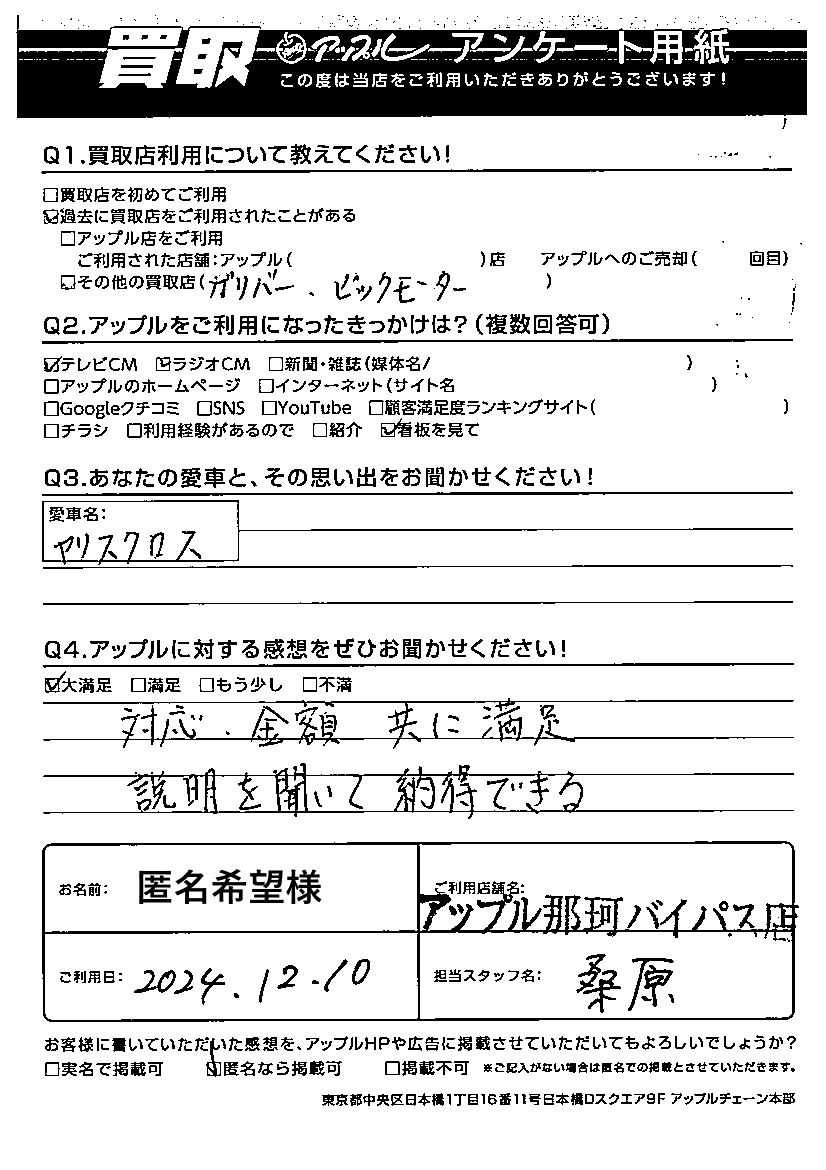 買取 アップル アンケート用紙
この度は当店をご利用いただきありがとうございます!
Q1.買取店利用について教えてください!
□買取店を初めてご利用
☑過去に買取店をご利用されたことがある
□アップル店をご利用
ご利用された店舗:アップル( )店 アップルへのご売却( 回目)
☑その他の買取店(ガリバー、ビックモーター )
Q2.アップルをご利用になったきっかけは?(複数回答可)
☑テレビCM ☑ラジオCM □新聞・雑誌(媒体名/ )
□アップルのホームページ □インターネット(サイト名 )
□Googleクチコミ □SNS □YouTube □顧客満足度ランキングサイト( )
□チラシ □利用経験があるので □紹介 ☑看板を見て
Q3.あなたの愛車と、その思い出をお聞かせください!
愛車名:
ヤリスクロス
Q4.アップルに対する感想をぜひお聞かせください!
☑大満足 □満足 □もう少し □不満
対応、金額 共に満足
説明を聞いて納得できる
お名前: 匿名希望様
ご利用店舗名:
アップル那珂バイパス店
ご利用日: 2024.12.10
担当スタッフ名: 桑原
お客様に書いていただいた感想を、アップルHPや広告に掲載させていただいてもよろしいでしょうか?
□実名で掲載可 ☑匿名なら掲載可 □掲載不可 ※ご記入がない場合は匿名での掲載とさせていただきます。
東京都中央区日本橋1丁目16番11号日本橋Dスクエア9F アップルチェーン本部